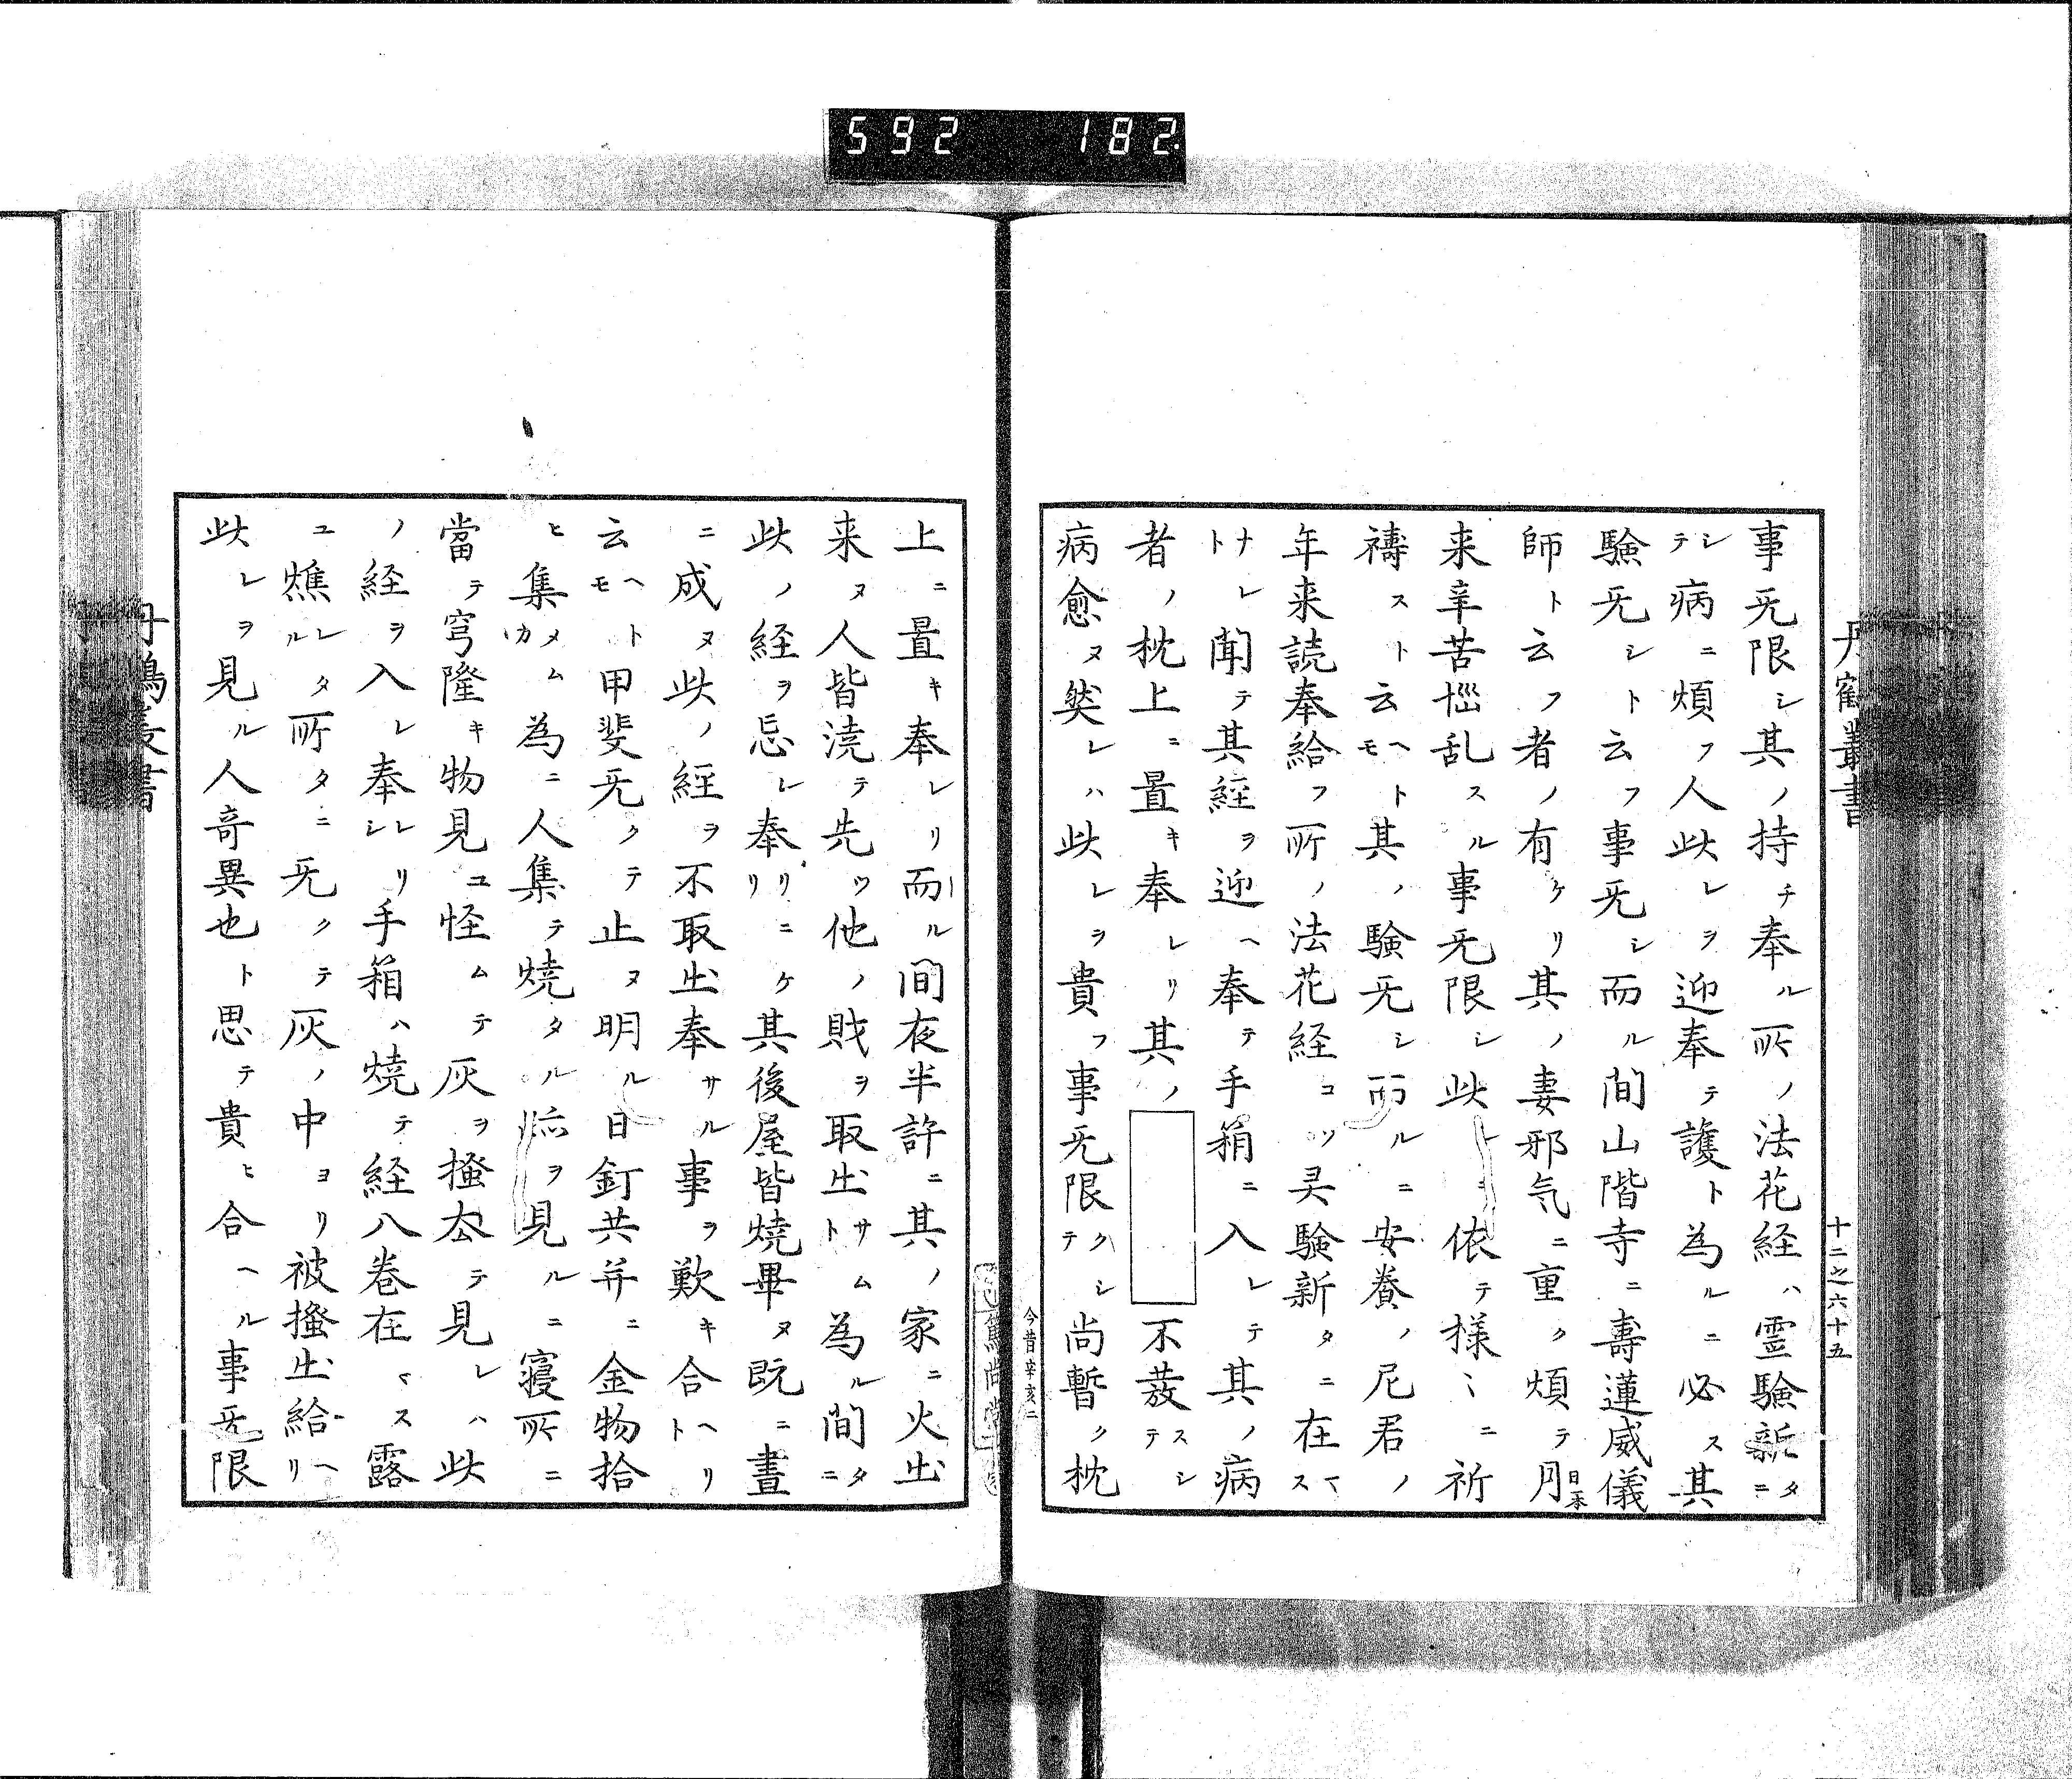 592 182
丹鶴叢書
十二之六十五
事无限シ其ノ持チ奉ル所ノ法花経ハ霊験新タニ
シテ病ニ煩フ人此レヲ迎奉テ護ト為ルニ必ス其
験无シト云フ事无シ而ル間山階寺ニ壽蓮威儀
師ト云フ者ノ有ケリ其ノ妻邪気ニ重ク煩テ月日本
来辛苦悩乱スル事无限シ此レニ依テ様〻ニ祈
禱スト云ヘトモ其ノ験无シ而ルニ安養ノ尼君ノ
年来読奉給フ所ノ法花経コソ灵験新タニ在マス
ナレト聞テ其経ヲ迎ヘ奉テ手箱ニ入レテ其ノ病
者ノ枕上ニ置キ奉レリ其ノ 不發スシテ
病愈ヌ然レハ此レヲ貴フ事无限クシテ尚暫ク枕
今昔辛亥二
上ニ置キ奉レリ而ル間夜半許ニ其ノ家ニ火出
来ヌ人皆澆テ先ツ他ノ財ヲ取出サムト為ル間タニ
此ノ経ヲ忘レ奉リニケリ其後屋皆燒畢ヌ既ニ晝
ニ成ヌ此ノ経ヲ不取出奉サル事ヲ歎キ合ヘリト
云ヘトモ甲斐无クテ止ヌ明ル日釘共并ニ金物拾
ヒ集メムカ為ニ人集テ燒タル跡ヲ見ルニ寝所ニ
當テ穹隆キ物見ユ怪ムテ灰ヲ掻去テ見レハ此
ノ経ヲ入レ奉レリシ手箱ハ燒テ経八巻在マス露
ユ燋レタル所タニ无クテ灰ノ中ヨリ被掻出給ヘリ
此レヲ見ル人奇異也ト思テ貴ヒ合ヘル事无限
丹鶴叢書